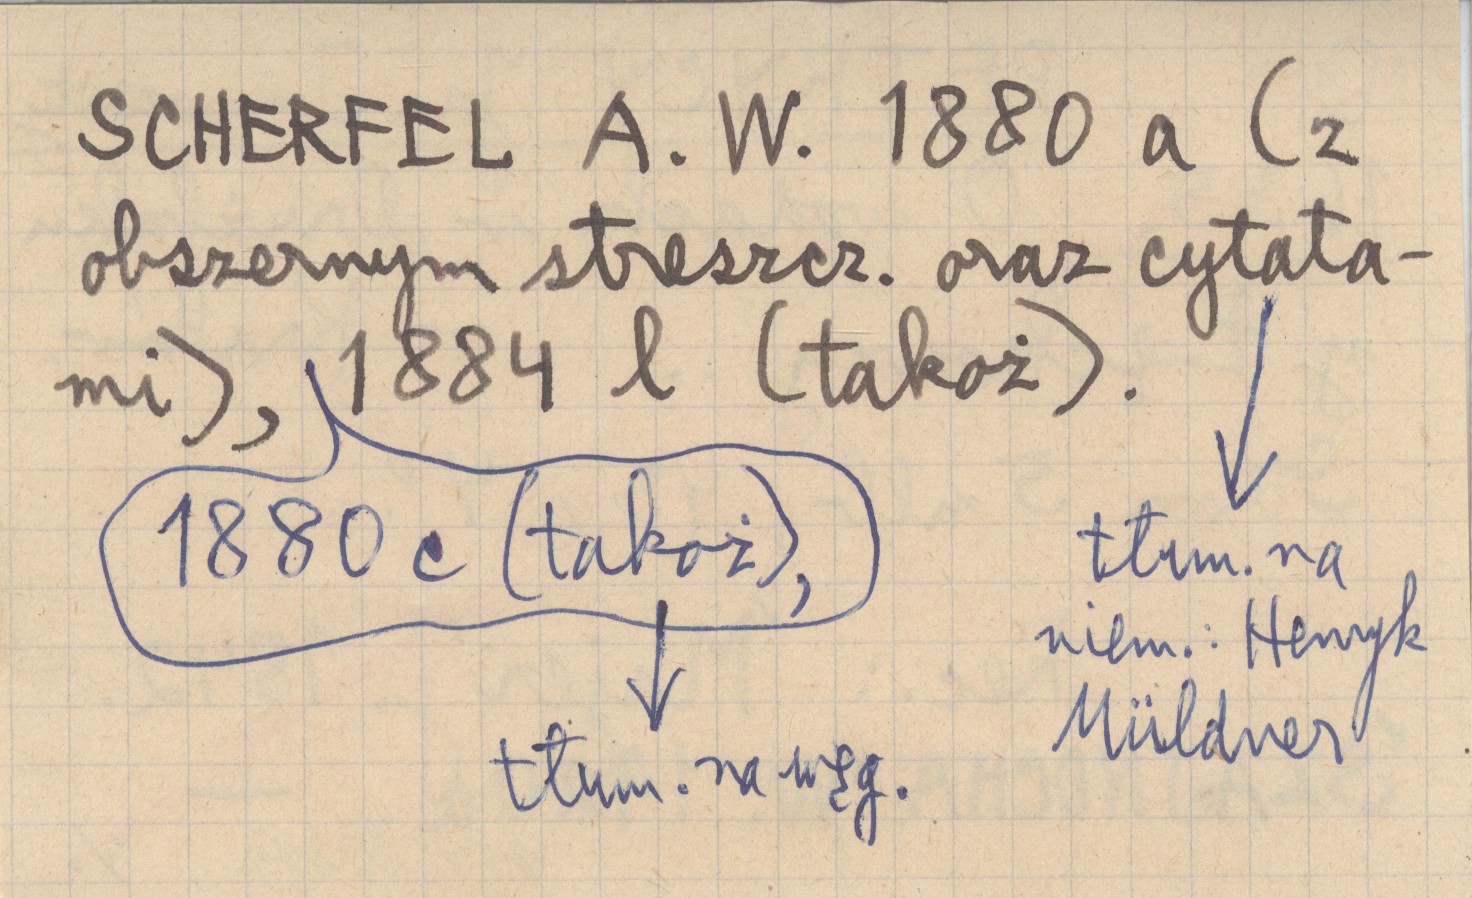 SCHERFEL A. W. 1880 a (z
obszernym streszcz. oraz cytata-
mi), 1884 l (takoż).
1880 c (takoż),
tłum. na węg.
tłum. na
niem.: Henryk
Müldner